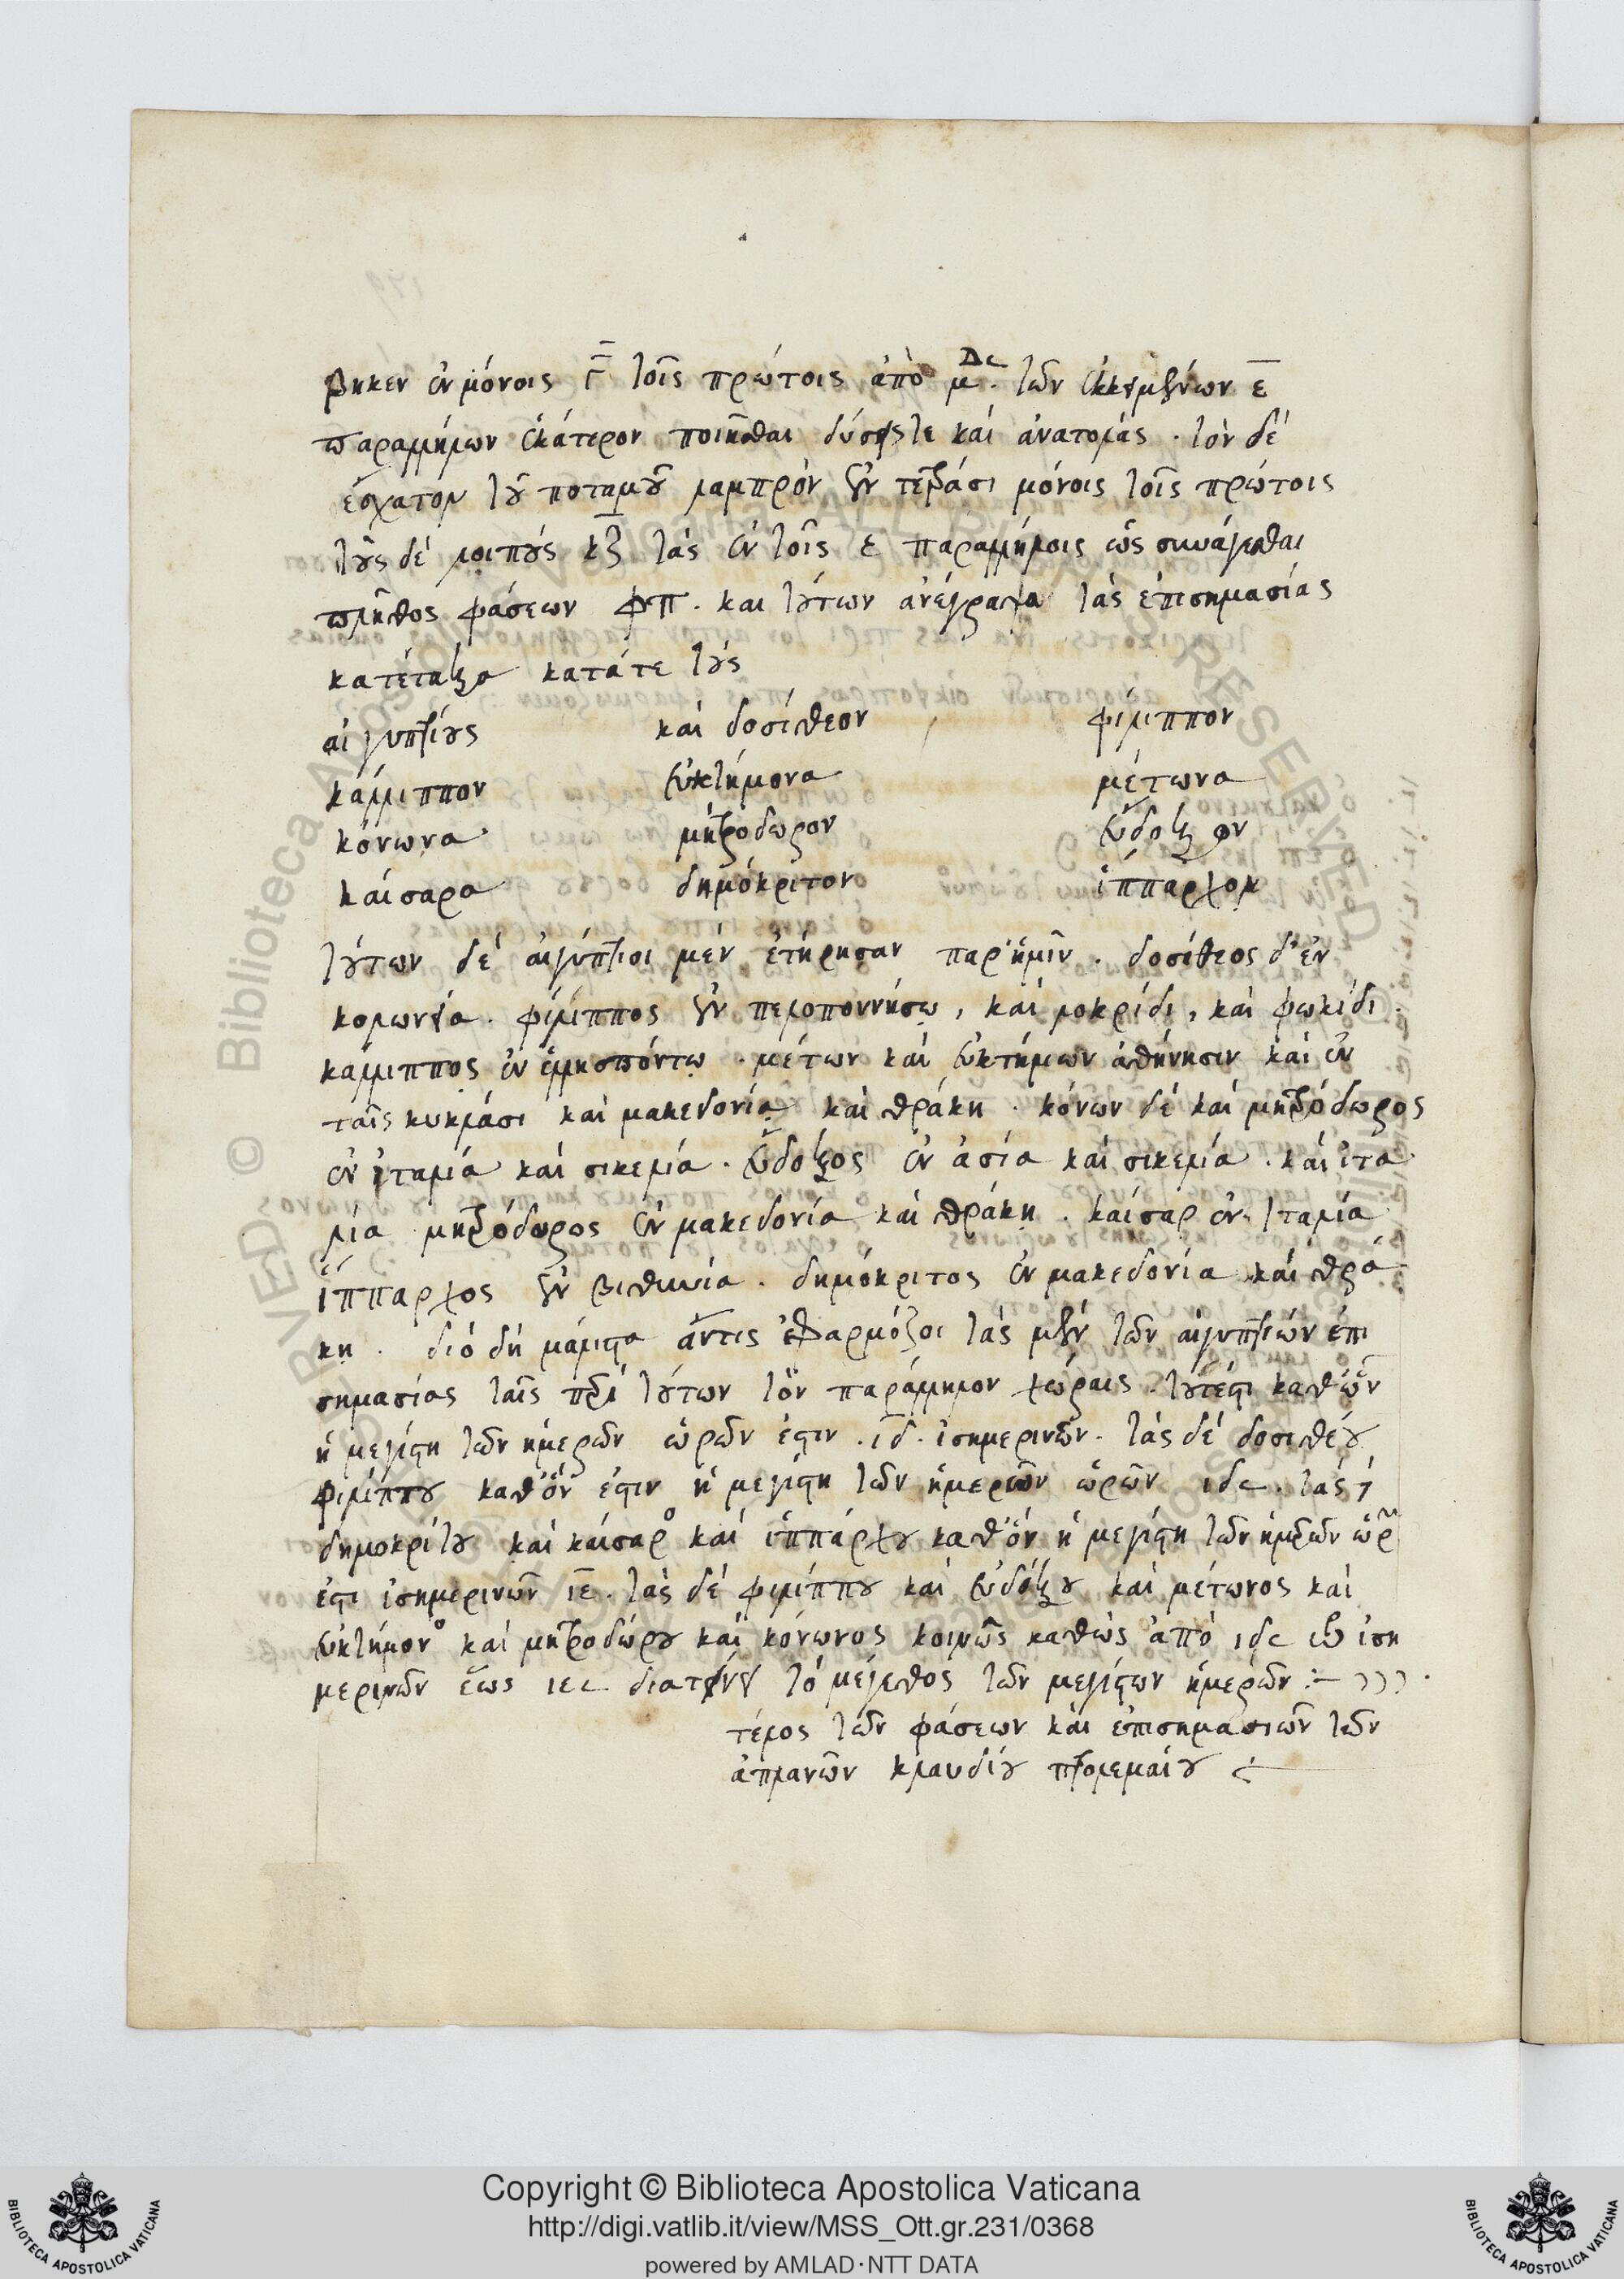 βηκεν ἐν μόνοις γ τοῖς πρώτοις ἀπὸ τῶν ἐκκειμένων ε
παραλλήλων ἑκάτερον ποιεῖσθαι δύσεις τε καὶ ἀνατολάς. τὸν δὲ
ἔσχατον τοῦ ποταμοῦ λαμπρὸν ἐν τέτρασι μόνοις τοῖς πρώτοις
τοὺς δὲ λοιποὺς κζ τὰς ἐν τοῖς ε παραλλήλοις ὡς συνάγεσθαι
πλῆθος φάσεων φπ. και τούτων ἀνέγραψα τὰς ἐπισημασίας
κατέταξα κατάτε τοὺς
αἰγυπτίους καὶ δοσίθεον φίλιππον
κάλλιππον εὐκτήμονα μέτωνα
κόνωνα μητρόδωρον εὔδοξον
καίσαρα δημόκριτον ἵππαρχον
τούτων δὲ αἰγύπτιοι μὲν ἐτήρησαν παρ' ἡμῖν. δοσίθεος δ' ἐν
κολωνία. φίλιππος ἐν πελοποννήσῳ, καὶ λοκρίδι, καὶ φωκίδι.
κάλλιππος ἐν ἑλλησπόντῳ. μέτων καὶ εὐκτήμων ἀθήνησιν καὶ ἐν
ταῖς κυκλάσι καὶ μακεδονίᾳ καὶ θράκη. κόνων δὲ καὶ μητρόδωρος
ἐν ἰταλία καὶ σικελία. εὔδοξος ἐν ἀσία καὶ σικελία. καὶ ἰτα
λία μητρόδωρος ἐν μακεδονία καὶ θράκη. καίσαρ ἐν ἰταλία
ἵππαρχος ἐν βιθυνία. δημόκριτος ἐν μακεδονία καὶ θρά
κῃ. διὸ δὴ μάλιστα ἄντις ἐφαρμόζοι τὰς μὲν τῶν αἰγυπτίων ἐπι
σημασίας ταῖς περὶ τούτων τὸν παράλληλον χώραις. τουτέστι καθ' ὧν
ἡ μεγίστη τῶν ἡμερῶν ὡρῶν ἐστιν. ιδ. ἰσημερινῶν. τὰς δὲ δοσιθέου
φιλίππου καθ' ὅν ἐστιν ἡ μεγίστη τῶν ἡμερῶν ὡρῶν ιδ𐅵. τὰς
δημοκρίτου καὶ καίσαρο καὶ ἱππάρχου καθ' ὅν ἡ μεγίστη τῶν ἡμερῶν ὡρ
ἐστι ἰσημερινῶν ιε. τὰς δὲ φιλίππου καὶ εὐδόξου καὶ μέτωνος καὶ
εὐκτήμονο καὶ μητροδώρου καὶ κόνωνος κοινῶς καθὼς ἀπὸ ιδ𐅵 ἰση
μερινῶν ἕως ιε𐅵 τὸ μέγεθος τῶν μεγίστων ἡμερῶν :-
τέλος τῶν φάσεων καὶ ἐπισημασιῶν τῶν
ἀπλανῶν κλαυδίου πτολεμαίου
Copyright © Biblioteca Apostolica Vaticana
http://digi.vatlib.it/view/MSS_Ott.gr.231/0368
powered by AMLAD·NTT DATA